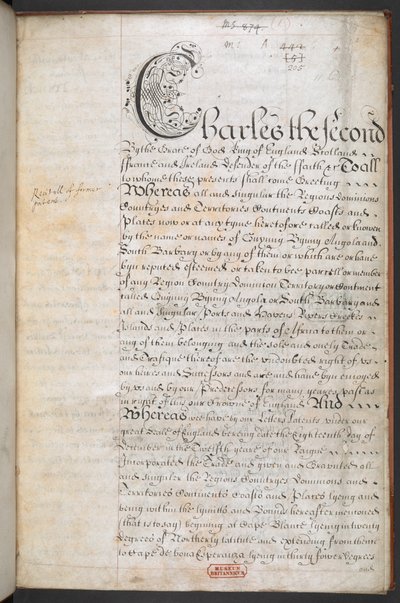 MS 874
m: A 447
[5]
205
Charles the second
By the Grace of God King of England Scotland
ffrance and Ireland Defender of the ffaith &c To all
to whome these presents shall come Greeting
Whereas all and singular the Regions Dominions
Recitall of former
patent.
Countryes and Territories Continents Coasts and
Places now or at any tyme heretofore called or knowen
by the name or names of Guynny Bynny Angola and
South Barbary or by any of them or which are or have
byn reputed esteemed or taken to bee parcell or member
of any Region Country Dominion Territory or Continent
called Guynny Bynny Angola or South Barbary and
all and singular Ports and Havens Rivers Creekes
Islands and Places in the parts of Africa to them or
any of them belonging and the sole and onely Trade
and Trafique thereof are the undoubted right of us
our heires and Successors and are and have byn enioyed
by us and by our Predecessors for many yeares past as
in right of this our Crowne of England And
Whereas wee have by our Letters Patents under our
great Seale of England bearing date the Eighteenth day of
December in the Twelfth yeare of our Raigne
Incorporated the Trade and given and Graunted all
and singuler the Regions Countryes Dominions and
Territories Continents Coasts and Places lyeing and
being within the lymitts and Bounds hereafter menconed
(that is to say) begining at Cape Blanc lyeing in twenty
degrees of Northerly latitude and extending from thence
to Cape de bona Esperanza lyeing in thirty fower degrees
and
MUSEUM
BRITANNICUM